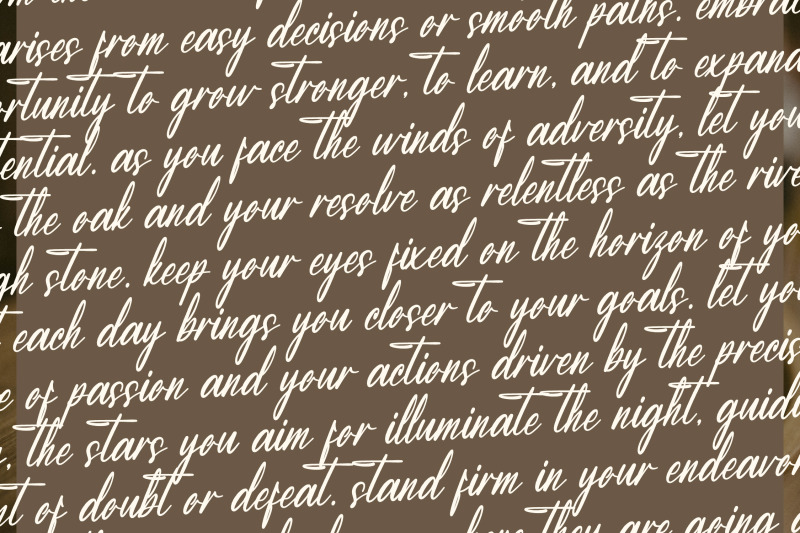 arises from easy decisions or smooth paths. embrac
ortunity to grow stronger, to learn, and to expand
tential. as you face the winds of adversity, let you
the oak and your resolve as relentless as the rive
gh stone. keep your eyes fixed on the horizon of yo
t each day brings you closer to your goals. let you
e of passion and your actions driven by the precis
, the stars you aim for illuminate the night, guidi
nt of doubt or defeat. stand firm in your endeavor
they are going